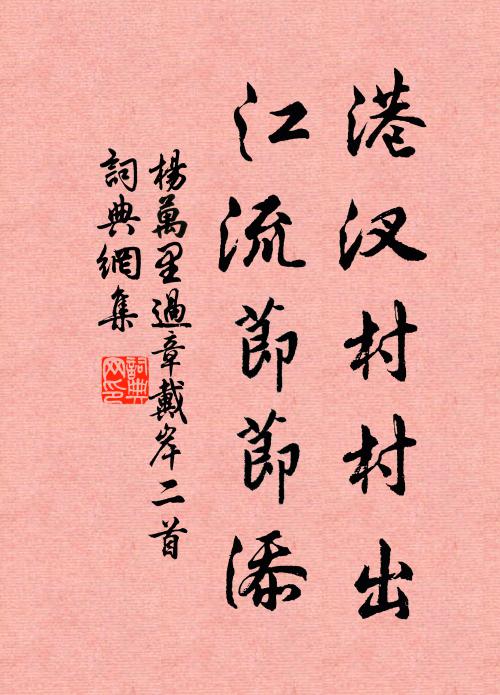 港汊村村出
江流節節添
楊萬里過章戴岸二首
詞典網集
詞典網印